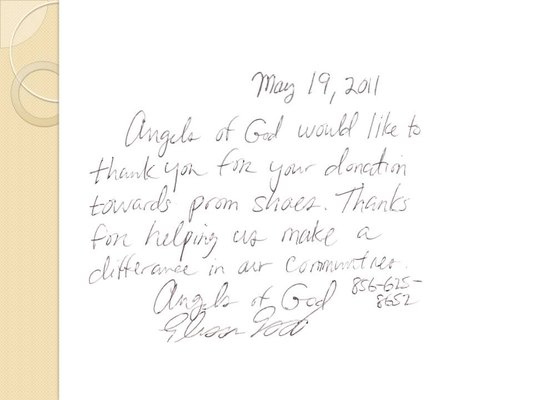 May 19, 2011
Angels of God would like to
thank you for your donation
towards prom shoes. Thanks
for helping us make a
differance in our communties.
Angels of God 856-625-
8652